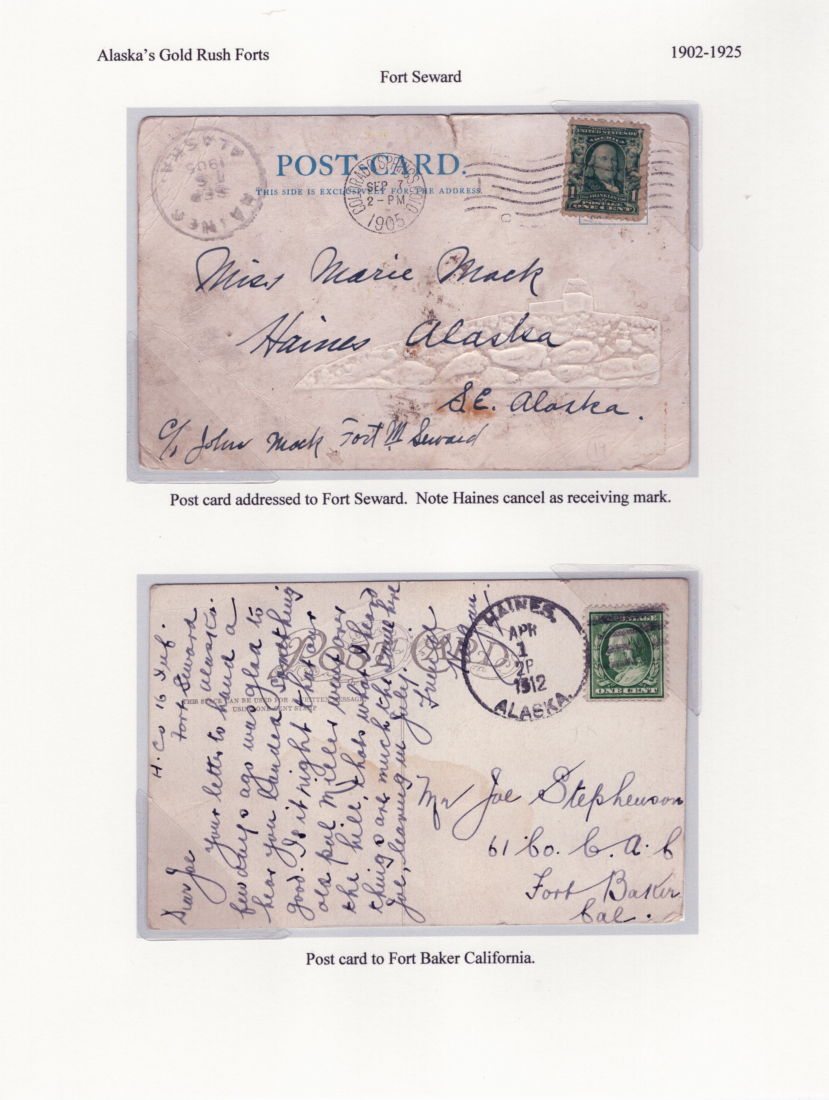 Alaska's Gold Rush Forts
1902-1925
Fort Seward
HAINES
SEP
15
1905
ALASKA.
POST CARD.
THIS SIDE IS EXCLUSIVELY FOR THE ADDRESS.
COLORADO SPRINGS COLO
SEP 7
2-PM
1905
UNITED STATES OF
AMERICA
FRANKLIN
POSTAGE
ONE CENT
Miss Marie Mack
Haines Alaska
S.E. Alaska.
c/o John Mack Fort M Seward
Post card addressed to Fort Seward. Note Haines cancel as receiving mark.
H. Co 16 Inf.
Fort Seward
Alaska.
Dear Joe
your letter to hand a
few days ago was glad to
hear you landed something
good. Is it right that our
old pal Miller went over
the hill, thats what I heard
things are much the same here
Joe, leaving in July.
Friend
POST CARD
THIS SPACE CAN BE USED FOR A WRITTEN MESSAGE
USING ONE CENT STAMP
HAINES,
APR
1
2P
1912
ALASKA.
POSTAGE
ONE CENT
Mr Joe Stephenson
61 Co. C. A. C
Fort Baker
Cal.
Post card to Fort Baker California.